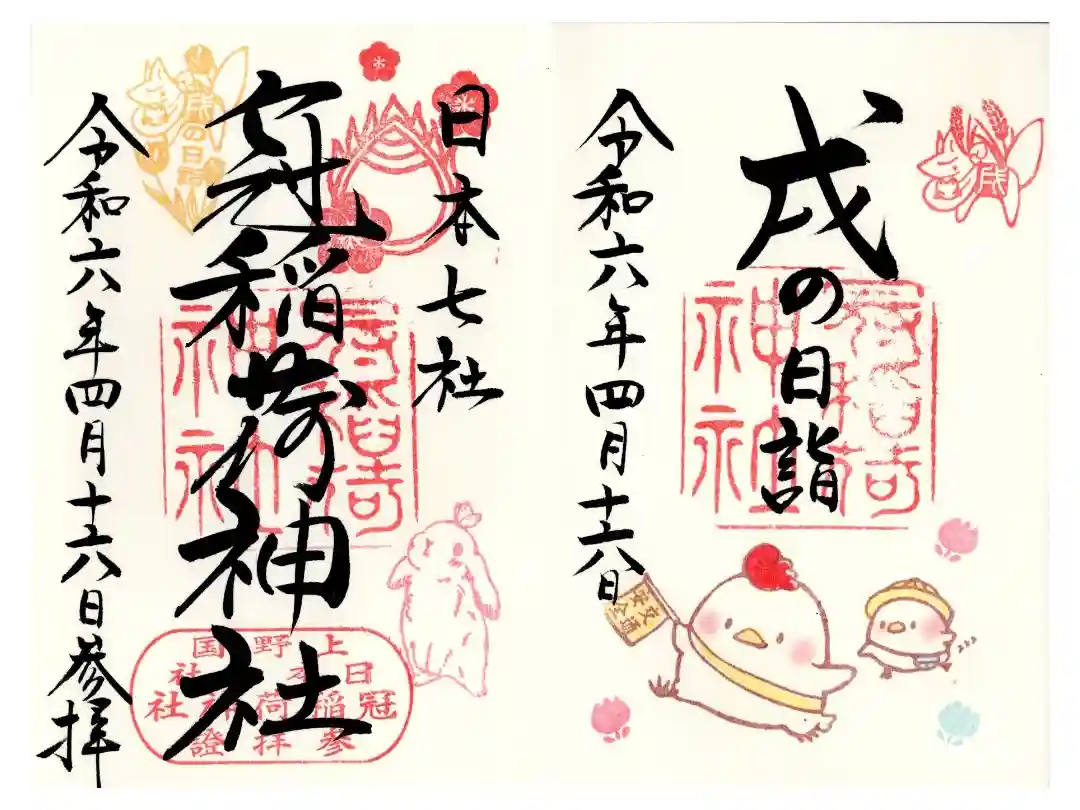 戌の日詣
令和六年四月十六日
交通
安全
戌
冠稲荷
神社
日本七社
冠稲荷神社
令和六年四月十六日参拝
戌の日詣
冠稲荷
神社
上野国
日本七社
冠稲荷神社
参拝證